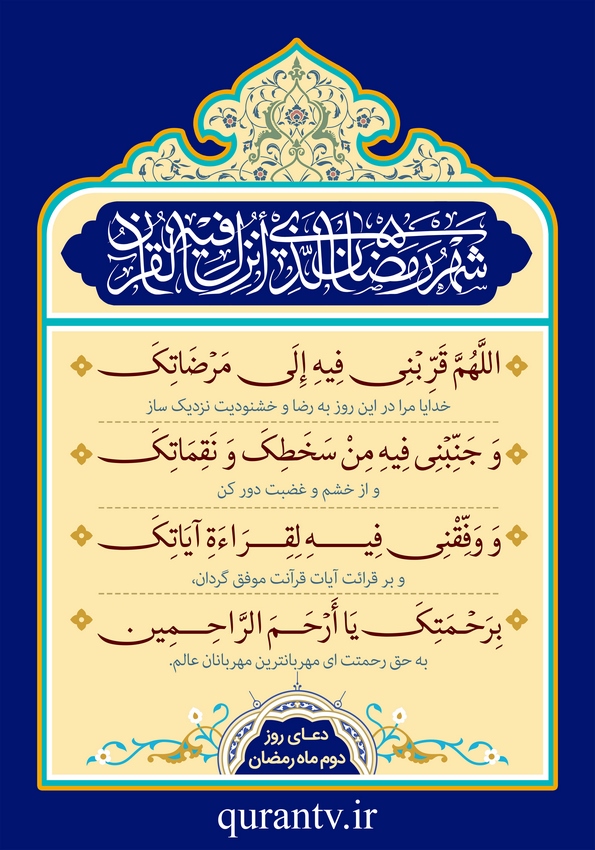 شَهْرُ رَمَضَانَ الَّذِي أُنْزِلَ فِيهِ الْقُرْآنُ
اللَّهُمَّ قَرِّبْنِی فِیهِ إِلَی مَرْضَاتِکَ
خدایا مرا در این روز به رضا و خشنودیت نزدیک ساز
وَ جَنِّبْنِی فِیهِ مِنْ سَخَطِکَ وَ نَقِمَاتِکَ
و از خشم و غضبت دور کن
وَ وَفِّقْنِی فِیهِ لِقِرَاءَةِ آیَاتِکَ
و بر قرائت آیات قرآنت موفق گردان،
بِرَحْمَتِکَ یَا أَرْحَمَ الرَّاحِمِین
به حق رحمتت ای مهربانترین مهربانان عالم.
دعای روز
دوم ماه رمضان
qurantv.ir